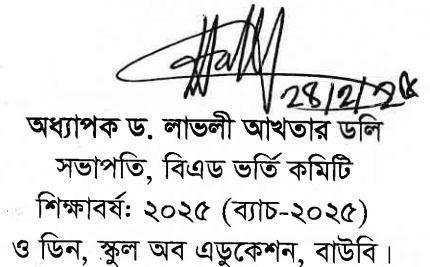 28/2/2৫
অধ্যাপক ড. লাভলী আখতার ডলি
সভাপতি, বিএড ভর্তি কমিটি
শিক্ষাবর্ষ: ২০২৫ (ব্যাচ-২০২৫)
ও ডিন, স্কুল অব এডুকেশন, বাউবি।